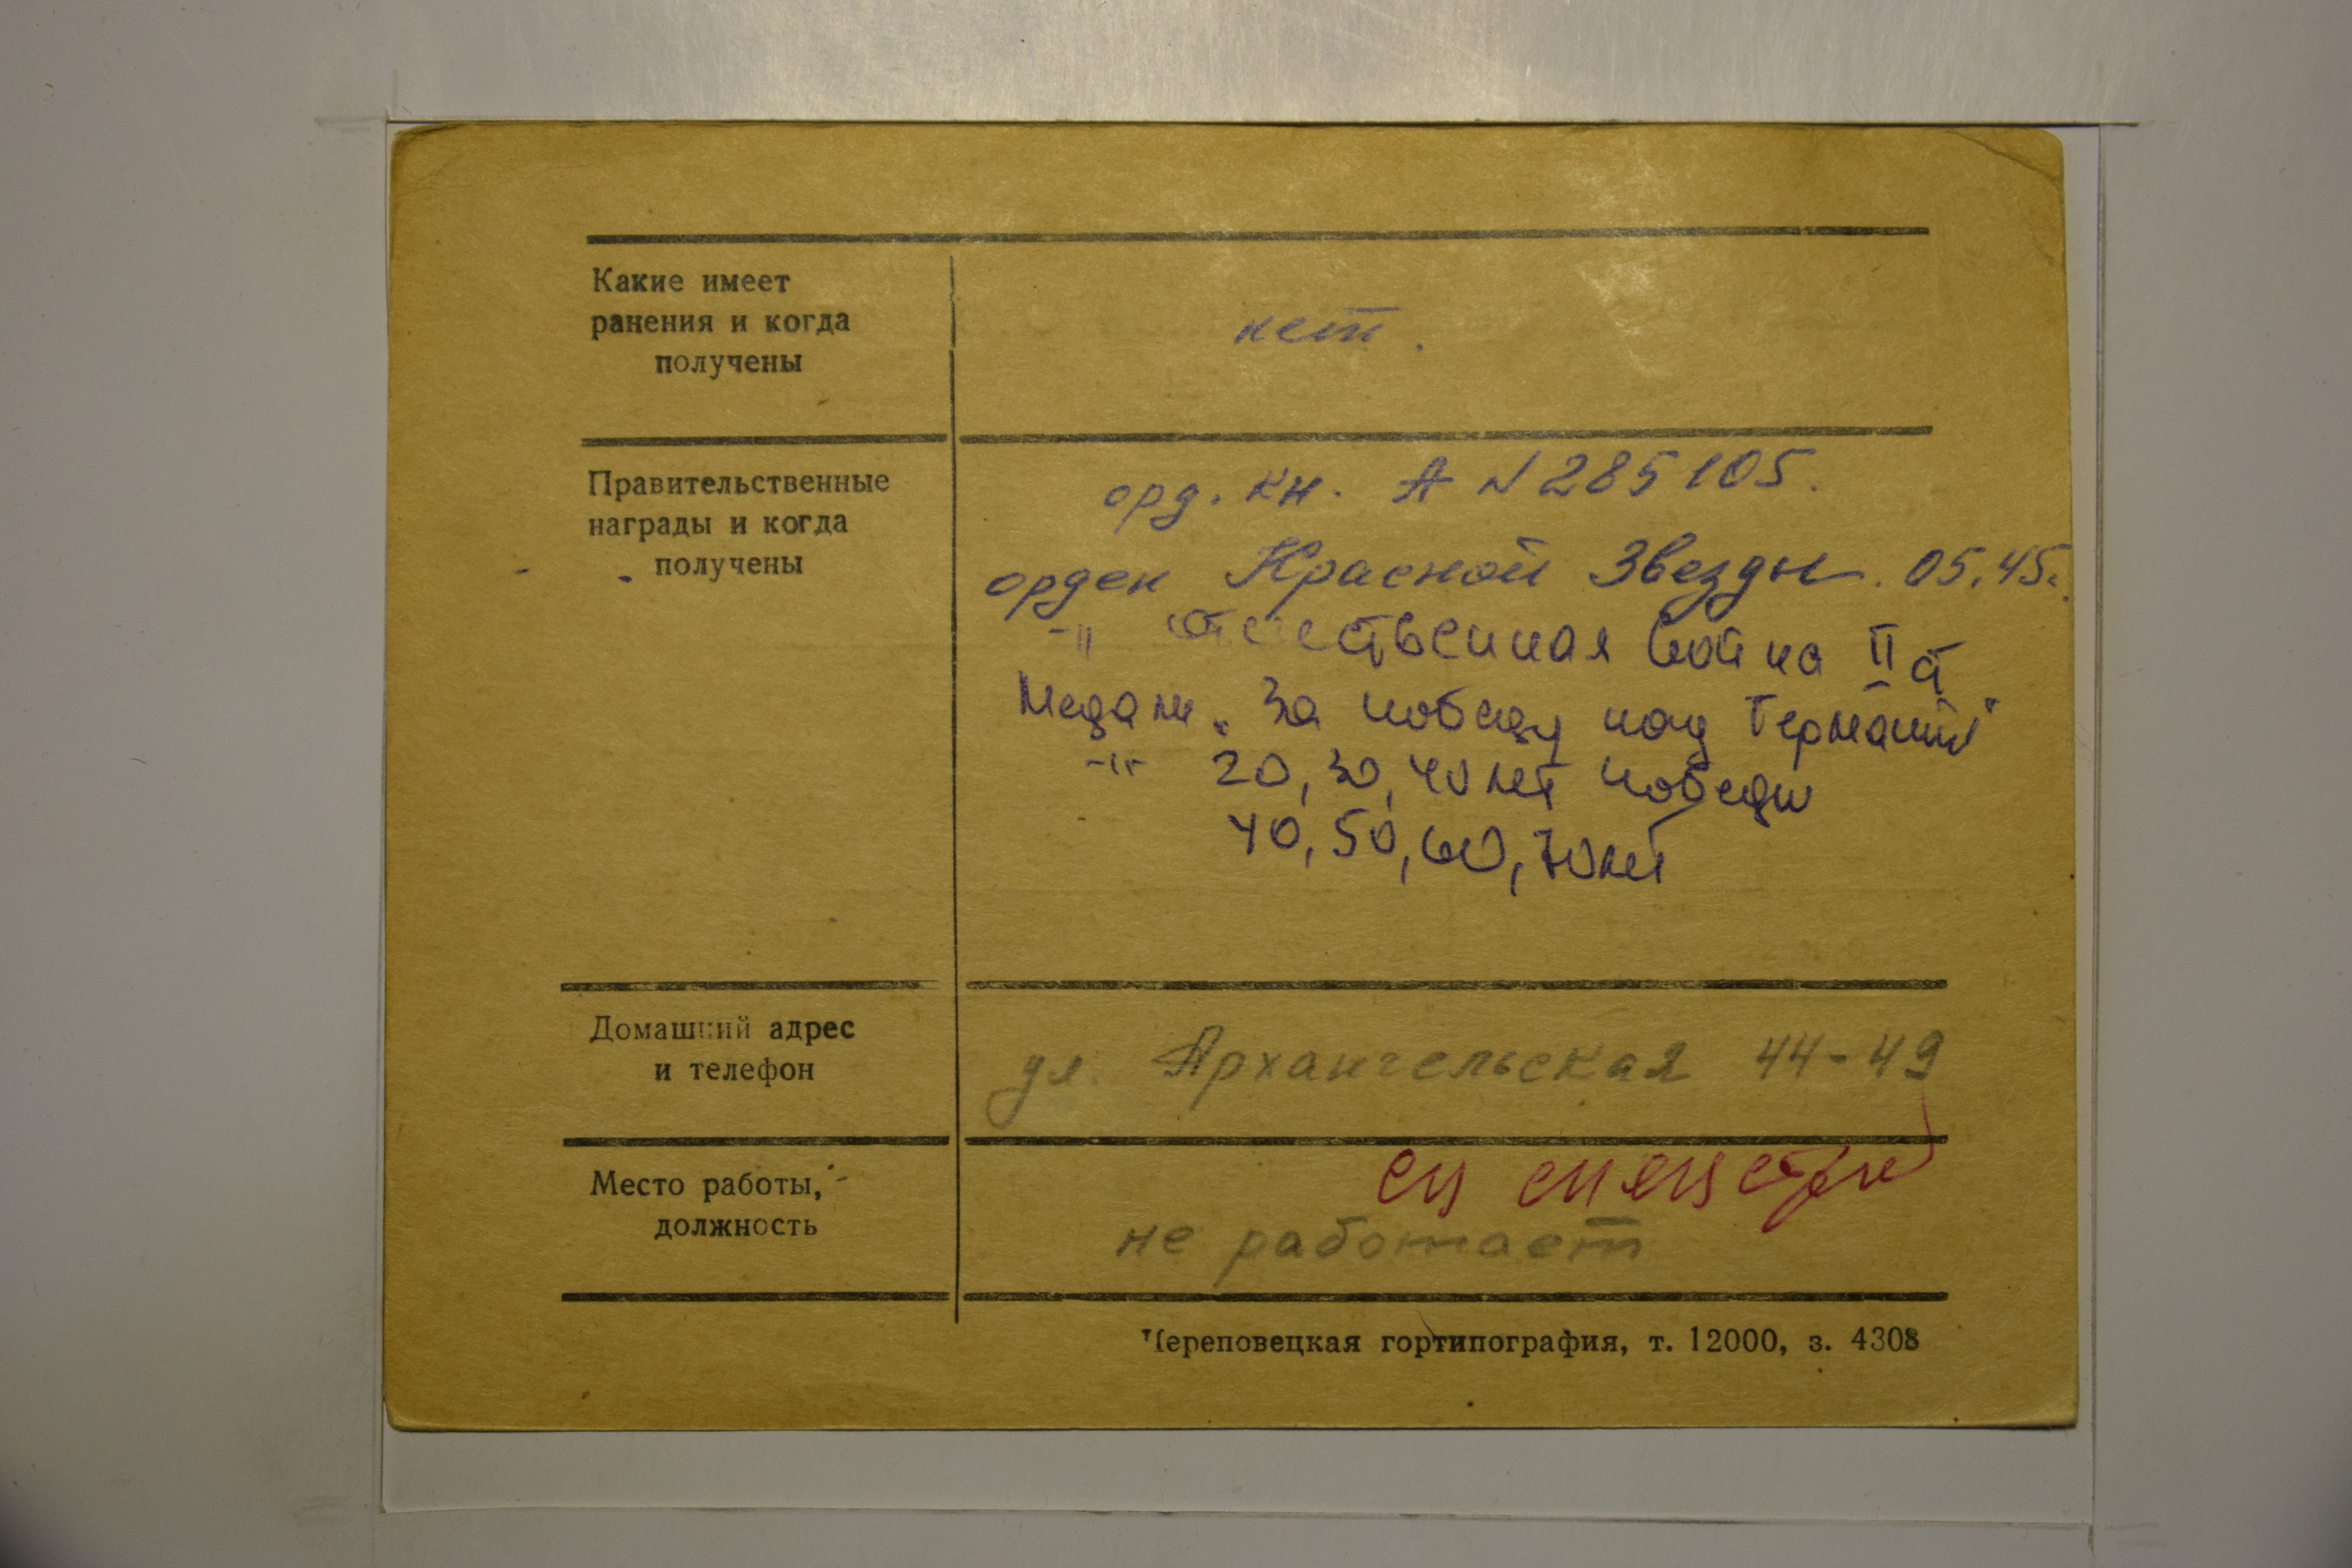 Какие имеет
ранения и когда
получены
нет.
Правительственные
награды и когда
получены
орд. кн. А N 285105.
орден Красной Звезды. 05.45г.
-"- Отечественная война II ст
Медали „За победу над Германией"
-"- 20, 30, 40 лет победы
40, 50, 60, 70 лет
Домашний адрес
и телефон
ул. Архангельская 44-49
Место работы,
должность
не работает
Череповецкая гортипография, т. 12000, з. 4308